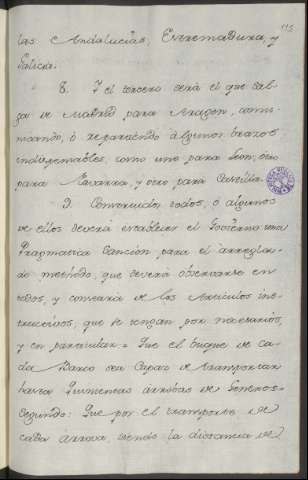 115
las Andalucias, Extremadura, y
Galicia.
8. Y el tercero será el que sal-
ga de Madrid para Aragon, comu-
nicando, ó repartiendo algunos brazos
indispensables, como uno para Leon, otro
para Navarra, y otro para Castilla.
9. Construidos todos, ó algunos
de ellos deverá establecer el Govierno una
Pragmatica Sancion para el arregla-
do metodo, que deverá observarse en
todos, y constará de los Articulos ins-
tructivos, que se tengan por necesarios,
y en particular = Que el buque de ca-
da Barco sea capaz de transportar
hasta Quinientas arrobas de Generos =
Segundo: Que por el transporte de
cada arrova, siendo la distancia de